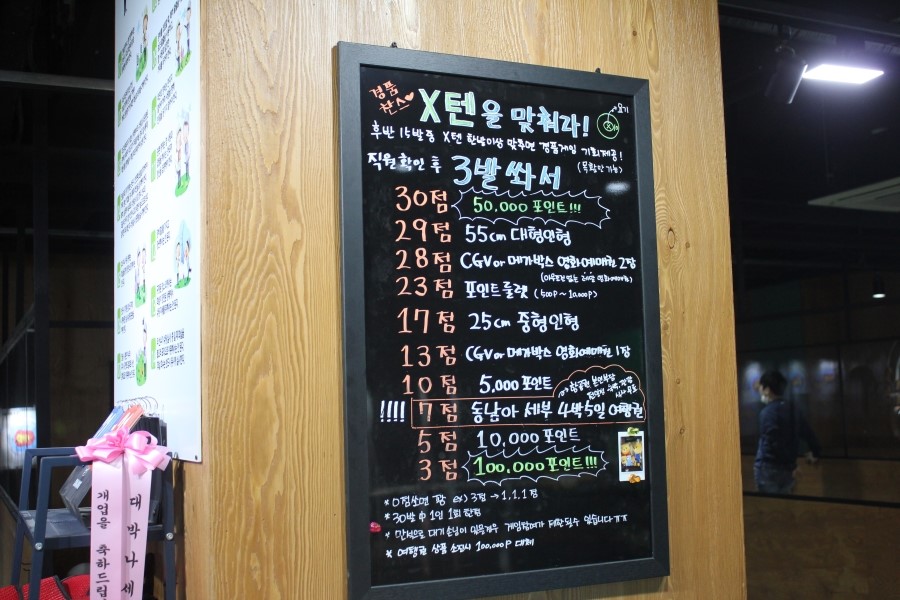 경품
찬스
X텐을 맞춰라!
요기
후반 15발중 X텐 한발이상 맞추면 경품게임 기회제공!
직원확인 후 3발 쏴서
30점 50,000 포인트!!!
29점 55cm 대형인형
28점 CGV or 메가박스 영화예매권 2장
23점 포인트룰렛 (500P ~ 10,000P)
17점 25cm 중형인형
13점 CGV or 메가박스 영화예매권 1장
10점 5,000 포인트
!!!! 7점 동남아 세부 4박5일 여행권
5점 10,000 포인트
3점 100,000 포인트!!!
* 0점쏘면 꽝 ex) 3점 → 1.1.1 점
* 30발 中 1인 1회 한정
* 만석으로 대기 손님이 있을경우 게임참여가 제한될수 있습니다 ㅠㅠ
* 여행권 상품 소진시 100,000P 대체
대박나세
개업을 축하드립